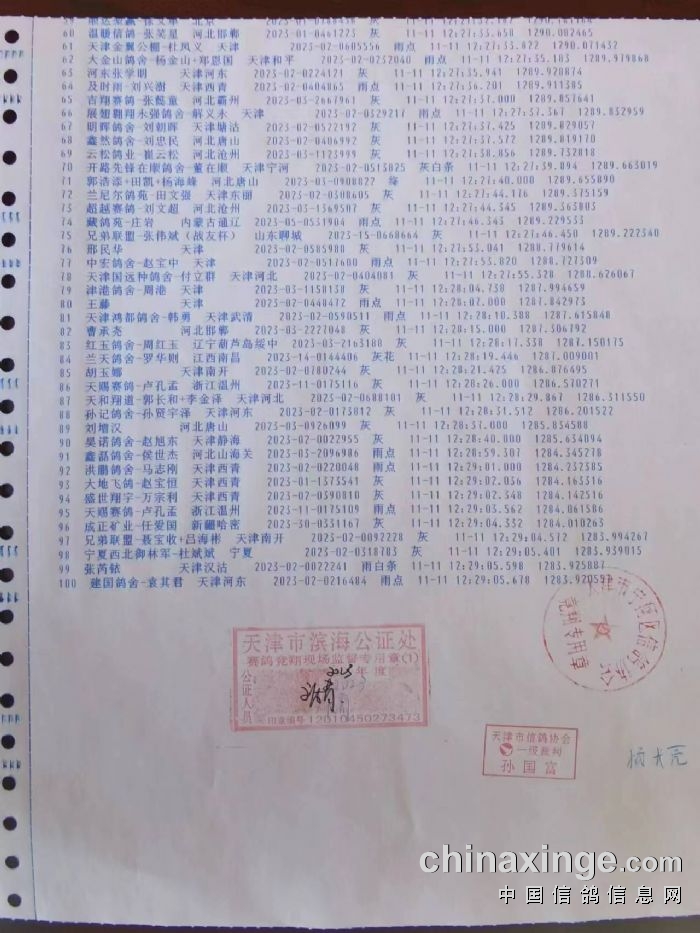 60 温暖信鸽-张笑星 河北邯郸 2023-01-0461223 灰 11-11 12:27:33.658 1290.002465
61 天津金翼公棚-杜凤义 天津 2023-02-0605556 雨点 11-11 12:27:33.822 1290.071432
62 大金山鸽舍-杨金山+郑恩国 天津和平 2023-02-0232040 雨点 11-11 12:27:35.183 1289.979868
63 河东张学明 天津河东 2023-02-0224121 灰 11-11 12:27:35.941 1289.928874
64 及时雨-刘兴澍 天津西青 2023-02-0404865 雨点 11-11 12:27:36.201 1289.911385
65 吉翔赛鸽-张懿童 河北霸州 2023-03-2667961 灰 11-11 12:27:37.000 1289.857641
66 展翅翱翔永强鸽舍-解义永 天津 2023-02-0329217 雨点 11-11 12:27:37.367 1289.832959
67 明辉鸽舍-刘朝晖 天津塘沽 2023-02-0522192 灰 11-11 12:27:37.425 1289.829057
68 鑫然鸽舍-刘忠民 河北唐山 2023-02-0406992 灰 11-11 12:27:37.572 1289.819170
69 云松鸽业-崔云松 河北沧州 2023-03-1123999 灰 11-11 12:27:38.856 1289.732818
70 开路先锋在顺鸽舍-董在顺 天津宁河 2023-02-0513825 灰白条 11-11 12:27:39.894 1289.663019
71 郭浩添+田凯+杨海峰 河北唐山 2023-03-0908822 绛 11-11 12:27:40.000 1289.655890
72 兰尼尔鸽苑-田文强 天津东丽 2023-02-0308605 灰 11-11 12:27:44.176 1289.375159
73 超越赛鸽-刘文超 河北沧州 2023-03-1369507 灰 11-11 12:27:44.345 1289.363803
74 藏鸽苑-庄岩 内蒙古通辽 2023-05-0531904 雨点 11-11 12:27:46.343 1289.229533
75 兄弟联盟-张伟斌（战友杯） 山东聊城 2023-15-0668664 灰 11-11 12:27:46.450 1289.222340
76 邢民华 天津 2023-02-0585980 灰 11-11 12:27:53.041 1288.779614
77 中宏鸽舍-赵宝中 天津 2023-02-0517600 雨点 11-11 12:27:53.820 1288.727309
78 天津国远种鸽舍-付立群 天津河北 2023-02-0404081 灰 11-11 12:27:55.328 1288.626067
79 津港鸽舍-周港 天津 2023-03-1158138 灰 11-11 12:28:04.738 1287.994659
80 王藤 天津 2023-02-0448472 雨点 11-11 12:28:07.000 1287.842973
81 天津鸿都鸽舍-韩勇 天津武清 2023-02-0590511 雨点 11-11 12:28:10.388 1287.615848
82 曹承尧 河北邯郸 2023-03-2227048 灰 11-11 12:28:15.000 1287.306792
83 红玉鸽舍-周红玉 辽宁葫芦岛绥中 2023-03-2163180 灰 11-11 12:28:17.338 1287.150175
84 兰天鸽舍-罗华则 江西南昌 2023-14-0144406 灰花 11-11 12:28:19.446 1287.009001
85 胡玉娜 天津南开 2023-02-0780244 灰 11-11 12:28:21.425 1286.876495
86 天赐赛鸽-卢孔孟 浙江温州 2023-11-0175116 灰 11-11 12:28:26.000 1286.570271
87 天和翔道-郭长和+李金泽 天津河北 2023-02-0688101 灰 11-11 12:28:29.867 1286.311550
88 孙记鸽舍-孙贤宇泽 天津河东 2023-02-0173812 灰 11-11 12:28:31.512 1286.201522
89 刘增汉 河北唐山 2023-03-0926099 灰 11-11 12:28:37.000 1285.834588
90 昊诺鸽舍-赵旭东 天津静海 2023-02-0022955 灰 11-11 12:28:40.000 1285.634094
91 鑫磊鸽舍-侯世杰 河北山海关 2023-03-2096986 雨点 11-11 12:28:59.307 1284.345278
92 洪鹏鸽舍-马志刚 天津西青 2023-02-0220048 雨点 11-11 12:29:01.000 1284.232385
93 大地飞鸽-赵宝恒 天津西青 2023-01-1373541 灰 11-11 12:29:02.036 1284.163316
94 盛世翔宇-万宗利 天津西青 2023-02-0390810 灰 11-11 12:29:02.348 1284.142516
95 天赐赛鸽-卢孔孟 浙江温州 2023-11-0175109 雨点 11-11 12:29:03.562 1284.061586
96 成正矿业-任爱国 新疆哈密 2023-30-0331167 灰 11-11 12:29:04.332 1284.010263
97 兄弟联盟-聂宝收+吕海彬 天津南开 2023-02-0092228 灰 11-11 12:29:04.572 1283.994267
98 宁夏西北御林军-杜斌斌 宁夏 2023-02-0318783 灰 11-11 12:29:05.401 1283.939015
99 张芮铱 天津汉沽 2023-02-0022241 雨白条 11-11 12:29:05.598 1283.925887
100 建国鸽舍-袁其君 天津河东 2023-02-0216484 雨点 11-11 12:29:05.678 1283.920557
天津市滨海公证处
赛鸽竞翔现场监督专用章(1)
2023年度
公证人员
印章编号12010450273473
竞翔专用章
天津市信鸽协会
一级裁判
孙国富
chinaxinge.com
中国信鸽信息网